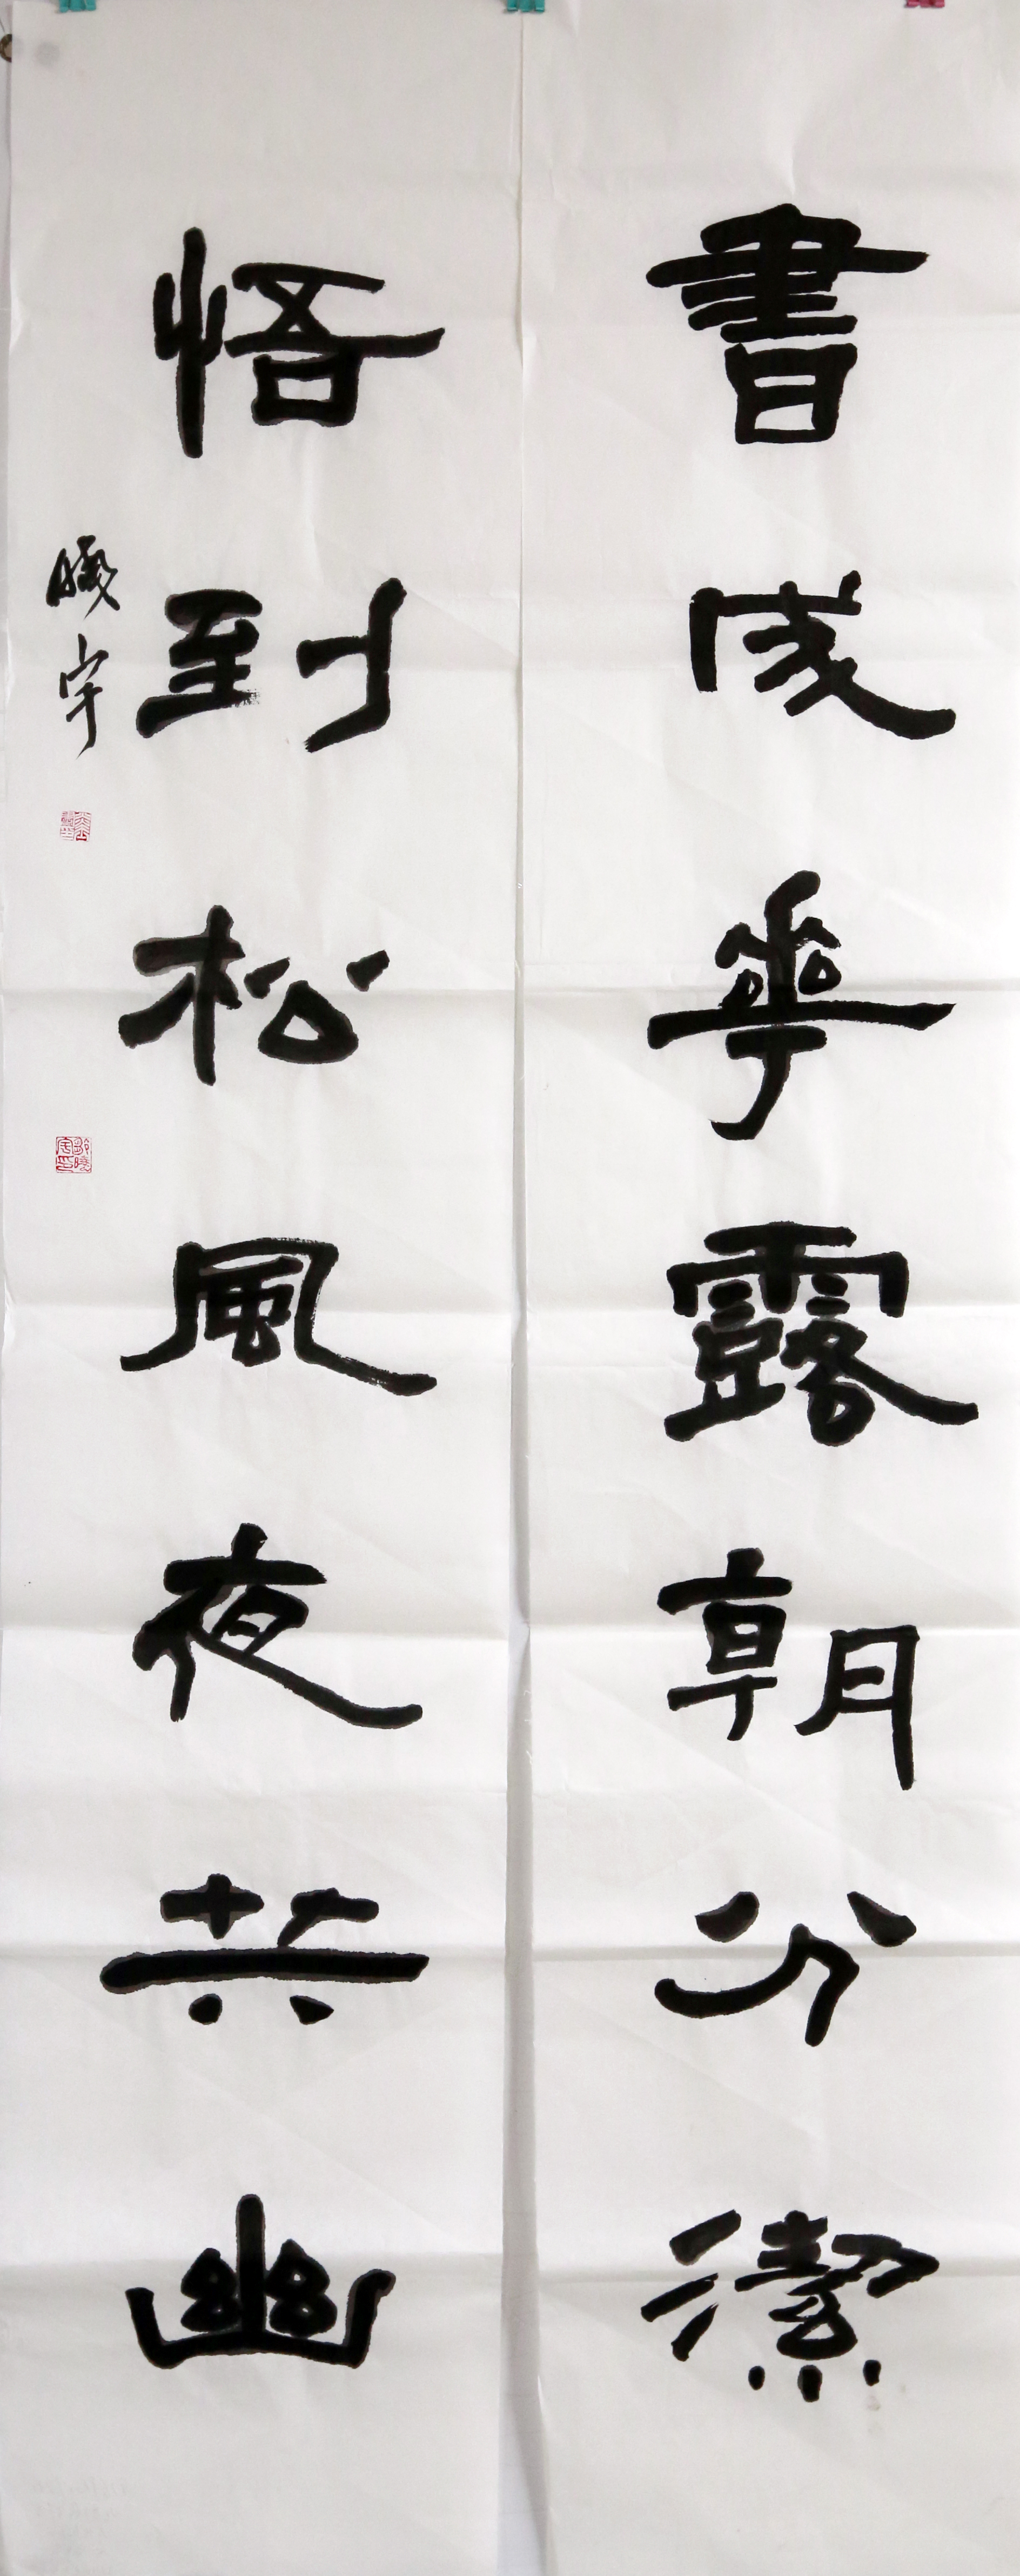 書成華露朝分潔
悟到松風夜共幽
曦宇